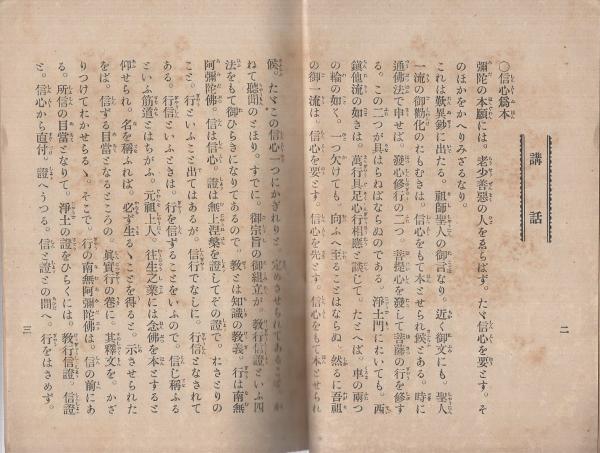 講話
○信心爲本
彌陀の本願には。老少善惡の人をゑらばず。たゞ信心を要とす。そ
のほかをかへりみざるなり。
これは歎異鈔に出たる。祖師聖人の御言なり。近く御文にも。聖人
一流の御勸化のおもむきは。信心をもて本とせられ候とある。時に
通佛法で申せば。發心修行の二つ。菩提心を發して菩薩の行を修す
る。この二つが具はらねばならぬのである。淨土門においても。西
鎭他流の如きは。萬行具足心行相應と談じて。たとへば。車の兩つ
の輪の如く。一つ欠けても。向ふへ至ることはならぬ。然るに吾祖
の御一流は。信心を要とす。信心を先とす。信心をもて本とせられ
二
候。たゞこの信心一つにかぎれりと。定めさせられてある
ねて聽聞のとほり。すでに。御宗旨の御組立が。教行信證といふ四
法をもて御ひらきになりてあるので。教とは知識の教義。行は南無
阿彌陀佛。信は信心。證は無上涅槃を證してその證で。おさとりの
こと。行といふこと出てはあるが。信行でなしに。行信となされて
ある。行信といふときは。行を信ずることをいふので。信じ稱ふる
といふ筋道とはちがふ。元祖上人。往生之業には念佛を本とすると
仰せられ。名を稱ふれば。必ず生るゝことを得ると。示させられた
をば。信ずる目當となるところの。眞實行の卷に。其釋文を。かざ
りつけてれかせらるゝ。そこで。行の南無阿彌陀佛は。信の前にあ
る。所信の目當となりて。淨土の證をひらくには。教行信證。信證
と。信心から直付。證へうつる。信と證との間へ。行をはさめず。
三